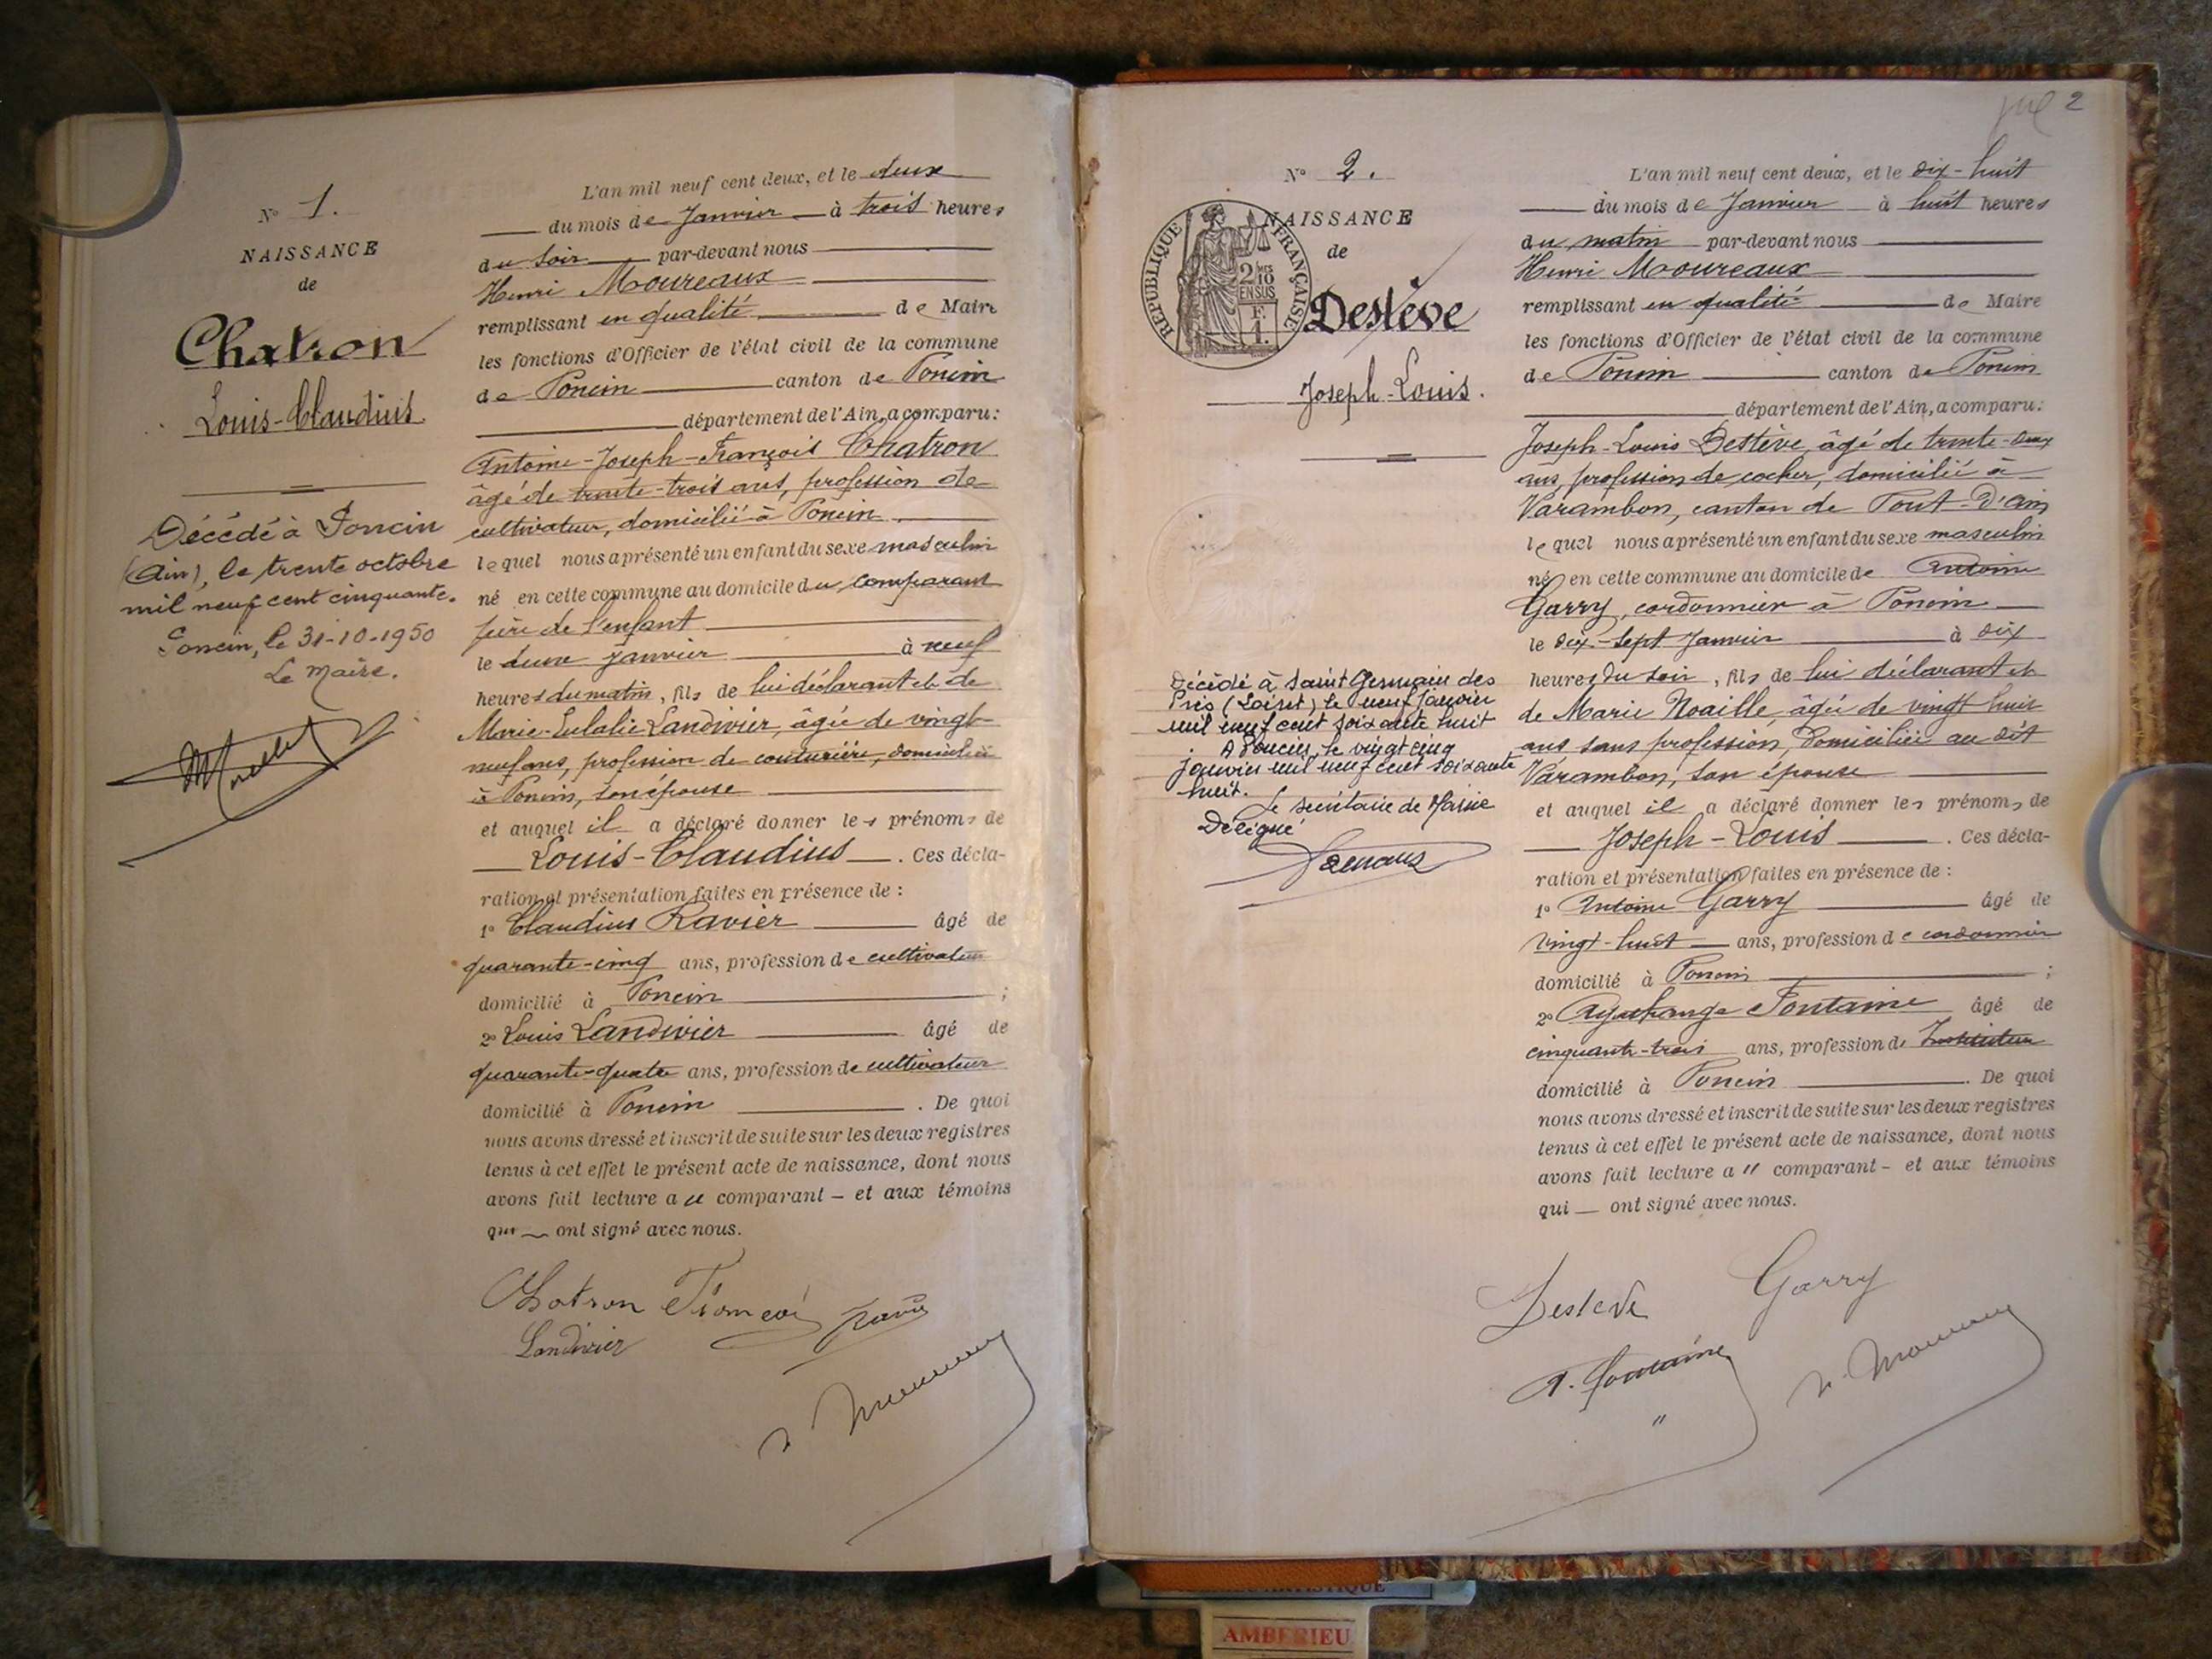 N° 1.
NAISSANCE
de
Chatron
Louis-Claudius.
Décédé à Poncin
(Ain), le trente octobre
mil neuf cent cinquante.
Poncin, le 31-10-1950
Le Maire.
L'an mil neuf cent deux, et le deux
du mois de Janvier à trois heures
du soir par-devant nous
Henri Moureaux
remplissant en qualité de Maire
les fonctions d'Officier de l'état civil de la commune
de Poncin canton de Poncin
département de l'Ain, a comparu:
Antoine-Joseph-François Chatron
âgé de trente-trois ans, profession de
cultivateur, domicilié à Poncin
lequel nous a présenté un enfant du sexe masculin
né en cette commune au domicile du comparant
père de l'enfant
le deux janvier à neuf
heures du matin, fils de lui déclarant et de
Marie-Eulalie Landivier, âgée de vingt-
neuf ans, profession de couturière, domiciliée
à Poncin, son épouse
et auquel il a déclaré donner les prénoms de
Louis-Claudius. Ces décla-
ration et présentation faites en présence de :
1° Claudius Ravier âgé de
quarante-cinq ans, profession de cultivateur
domicilié à Poncin ;
2° Louis Landivier âgé de
quarante-quatre ans, profession de cultivateur
domicilié à Poncin. De quoi
nous avons dressé et inscrit de suite sur les deux registres
tenus à cet effet le présent acte de naissance, dont nous
avons fait lecture au comparant - et aux témoins
qui — ont signé avec nous.
Chatron François Ravier
Landivier
2
N° 2.
NAISSANCE
de
REPUBLIQUE FRANÇAISE
2/10 MES
EN SUS
F.
1.
Destève
Joseph-Louis.
Décédé à Saint Germain des
Prés (Loiret) le neuf Janvier
mil neuf cent soixante huit
A Poncin, le vingt cinq
Janvier mil neuf cent soixante
huit.
Le secrétaire de Mairie
Délégué
L'an mil neuf cent deux, et le dix-huit
du mois de Janvier à huit heures
du matin par-devant nous
Henri Moureaux
remplissant en qualité de Maire
les fonctions d'Officier de l'état civil de la commune
de Poncin canton de Poncin
département de l'Ain, a comparu:
Joseph-Louis Destève, âgé de trente-deux
ans, profession de cocher, domicilié à
Varambon, canton de Pont-D'Ain
lequel nous a présenté un enfant du sexe masculin
né en cette commune au domicile de Antoine
Garry, cordonnier à Poncin
le dix-sept Janvier à dix
heures du soir, fils de lui déclarant et
de Marie Noaille, âgée de vingt huit
ans sans profession, domiciliée au dit
Varambon, son épouse
et auquel il a déclaré donner les prénoms de
Joseph-Louis. Ces décla-
ration et présentation faites en présence de :
1° Antoine Garry âgé de
vingt-huit ans, profession de cordonnier
domicilié à Poncin ;
2° Fontaine âgé de
cinquante-trois ans, profession d'Instituteur
domicilié à Poncin. De quoi
nous avons dressé et inscrit de suite sur les deux registres
tenus à cet effet le présent acte de naissance, dont nous
avons fait lecture a " comparant - et aux témoins
qui — ont signé avec nous.
Destève Garry
A. Fontaine
AMBERIEU